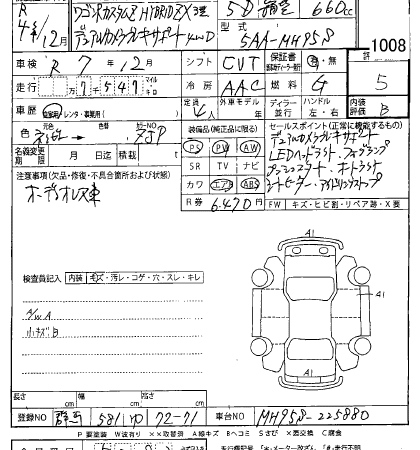 R 4年/12月
ワゴンRカスタムZ HYBRID ZX 3型 5D 660cc
デュアルカメラブレーキサポート 4WD
型式 5AA-MH95S
1008
車検 R 7年/12月 シフト CVT 保証書 有・無
走行 7万547 マイル キロ 冷房 AAC 燃料 G 評 5
車歴 自家用・レンタ・事業用( ) 定員 4人 外車モデル 年 ディーラー 並行 ハンドル 左・右 内装評価 B
色 カラーNo. ZJP
名義変更期限 月 日迄 積載 t
装備品(純正品に限る) PS PW AW
SR TV ナビ
カワ エアB ABS
R券 6,470円
セールスポイント(正常に機能するもの)
デュアルカメラブレーキサポート
LEDヘッドライト フォグランプ
プッシュスタート オートライト
シートヒーター アイドリングストップ
FW キズ・ヒビ割・リペア跡・X要
注意事項(欠品・修復・不具合箇所および状態)
オーディオレス車
検査員記入 内装 モズ・汚レ・コゲ・穴・スレ・キレ
A/W A
小キズ有
A1
A1
A1
長さ cm 幅 cm 高さ cm
登録NO 群馬 581 ゆ 72-71 車台NO MH95S-225880
P 要塗装 W波有り ××取替済 A線キズ Bヘコミ Sさび ×要交換 C腐食